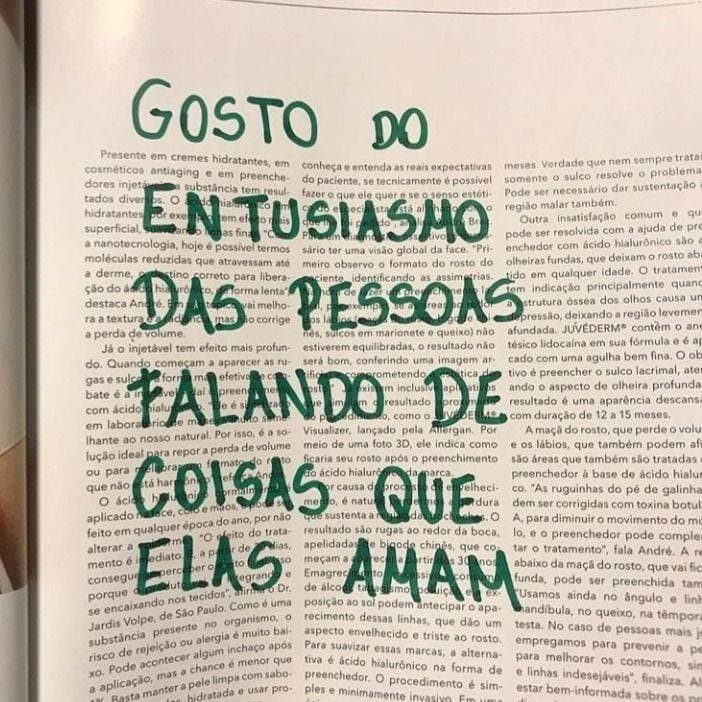 GOSTO DO
ENTUSIASMO
DAS PESSOAS
FALANDO DE
COISAS QUE
ELAS AMAM
Presente em cremes hidratantes, em
cosméticos antiaging e em preenche-
dores injetáveis substância tem resul-
tados
hidratantes
superficial,
a nanotecnologia, hoje é possível termos
moléculas reduzidas que atravessam até
a derme, destino correto para libera-
ção do forma lenta"
destaca André. vai melho-
ra a textura corrige
a perda de volume.
Já o injetável tem efeito mais profun-
do. Quando começam a aparecer as ru-
gas e sulcos forma mais efetiva
bate é a preenchimento
com ácido
em
lhante ao nosso natural. Por isso, é a so-
lução ideal para repor a perda de volume
ou para
que não está
O
aplicado face, colo e mãos,
feito em qualquer época do ano, por não
alterar a "O efeito do trata-
mento é imediato, a partir de dias,
conseguimos perceber
porque
se encaixando nos tecidos", afirma o Dr.
Jardis Volpe, de São Paulo. Como é uma
substância presente no organismo, o
risco de rejeição ou alergia é muito bai-
xo. Pode acontecer algum inchaço após
a aplicação, mas a chance é menor que
1%. Basta manter a pele limpa com sabo-
hidratada e usar pro-
conheça e entenda as reais expectativas
do paciente, se tecnicamente é possível
fazer o que ele quer e se o senso estéti-
co do especialista está
sário ter uma visão global da face. "Pri-
meiro observo o formato do rosto do
paciente, identificando as assimetrias.
nês, sulcos em marionete e queixo) não
estiverem equilibradas, o resultado não
será bom, conferindo uma imagem ar-
tificial
existem inclusive
resultado
como o
Visualizer, lançado pela Allergan. Por
meio de uma foto 3D, ele indica como
ficaria seu rosto após o preenchimento
do ácido hialurônico da marca.
por causa do processo
mento, é natural
que sustenta a O
resultado são rugas ao redor da boca,
apelidadas de bigode chinês, que co-
meçam a aparecer a partir dos 30 anos.
de
posição ao sol podem antecipar o apa-
recimento dessas linhas, que dão um
aspecto envelhecido e triste ao rosto.
Para suavizar essas marcas, a alterna-
tiva é ácido hialurônico na forma de
preenchedor. O procedimento é sim-
ples e minimamente invasivo. Em uma
meses. Verdade que nem sempre tratar
somente o sulco resolve o problema
Pode ser necessário dar sustentação
região malar também.
Outra insatisfação comum e qu
pode ser resolvida com a ajuda de pre
enchedor com ácido hialurônico são a
olheiras fundas, que deixam o rosto aba
tido em qualquer idade. O tratament
tem indicação principalmente quand
estrutura óssea dos olhos causa um
depressão, deixando a região levement
afundada. JUVÉDERM® contém o ane
tésico lidocaína em sua fórmula e é ap
cado com uma agulha bem fina. O ob
tivo é preencher o sulco lacrimal, aten
ando o aspecto de olheira profunda
resultado é uma aparência descansa
com duração de 12 a 15 meses.
A maçã do rosto, que perde o volu
e os lábios, que também podem afi
são áreas que também são tratadas
preenchedor à base de ácido hialur
co. "As ruguinhas do pé de galinha
dem ser corrigidas com toxina botul
A, para diminuir o movimento do m
lo, e o preenchedor pode comple
tar o tratamento", fala André. A re
abaixo da maçã do rosto, que vai fic
funda, pode ser preenchida tam
"Usamos ainda no ângulo e linh
mandíbula, no queixo, na têmpora
testa. No caso de pessoas mais j
empregamos para prevenir a pe
para melhorar os contornos, sim
e linhas indesejáveis", finaliza. Al
estar bem-informada sobre os pr